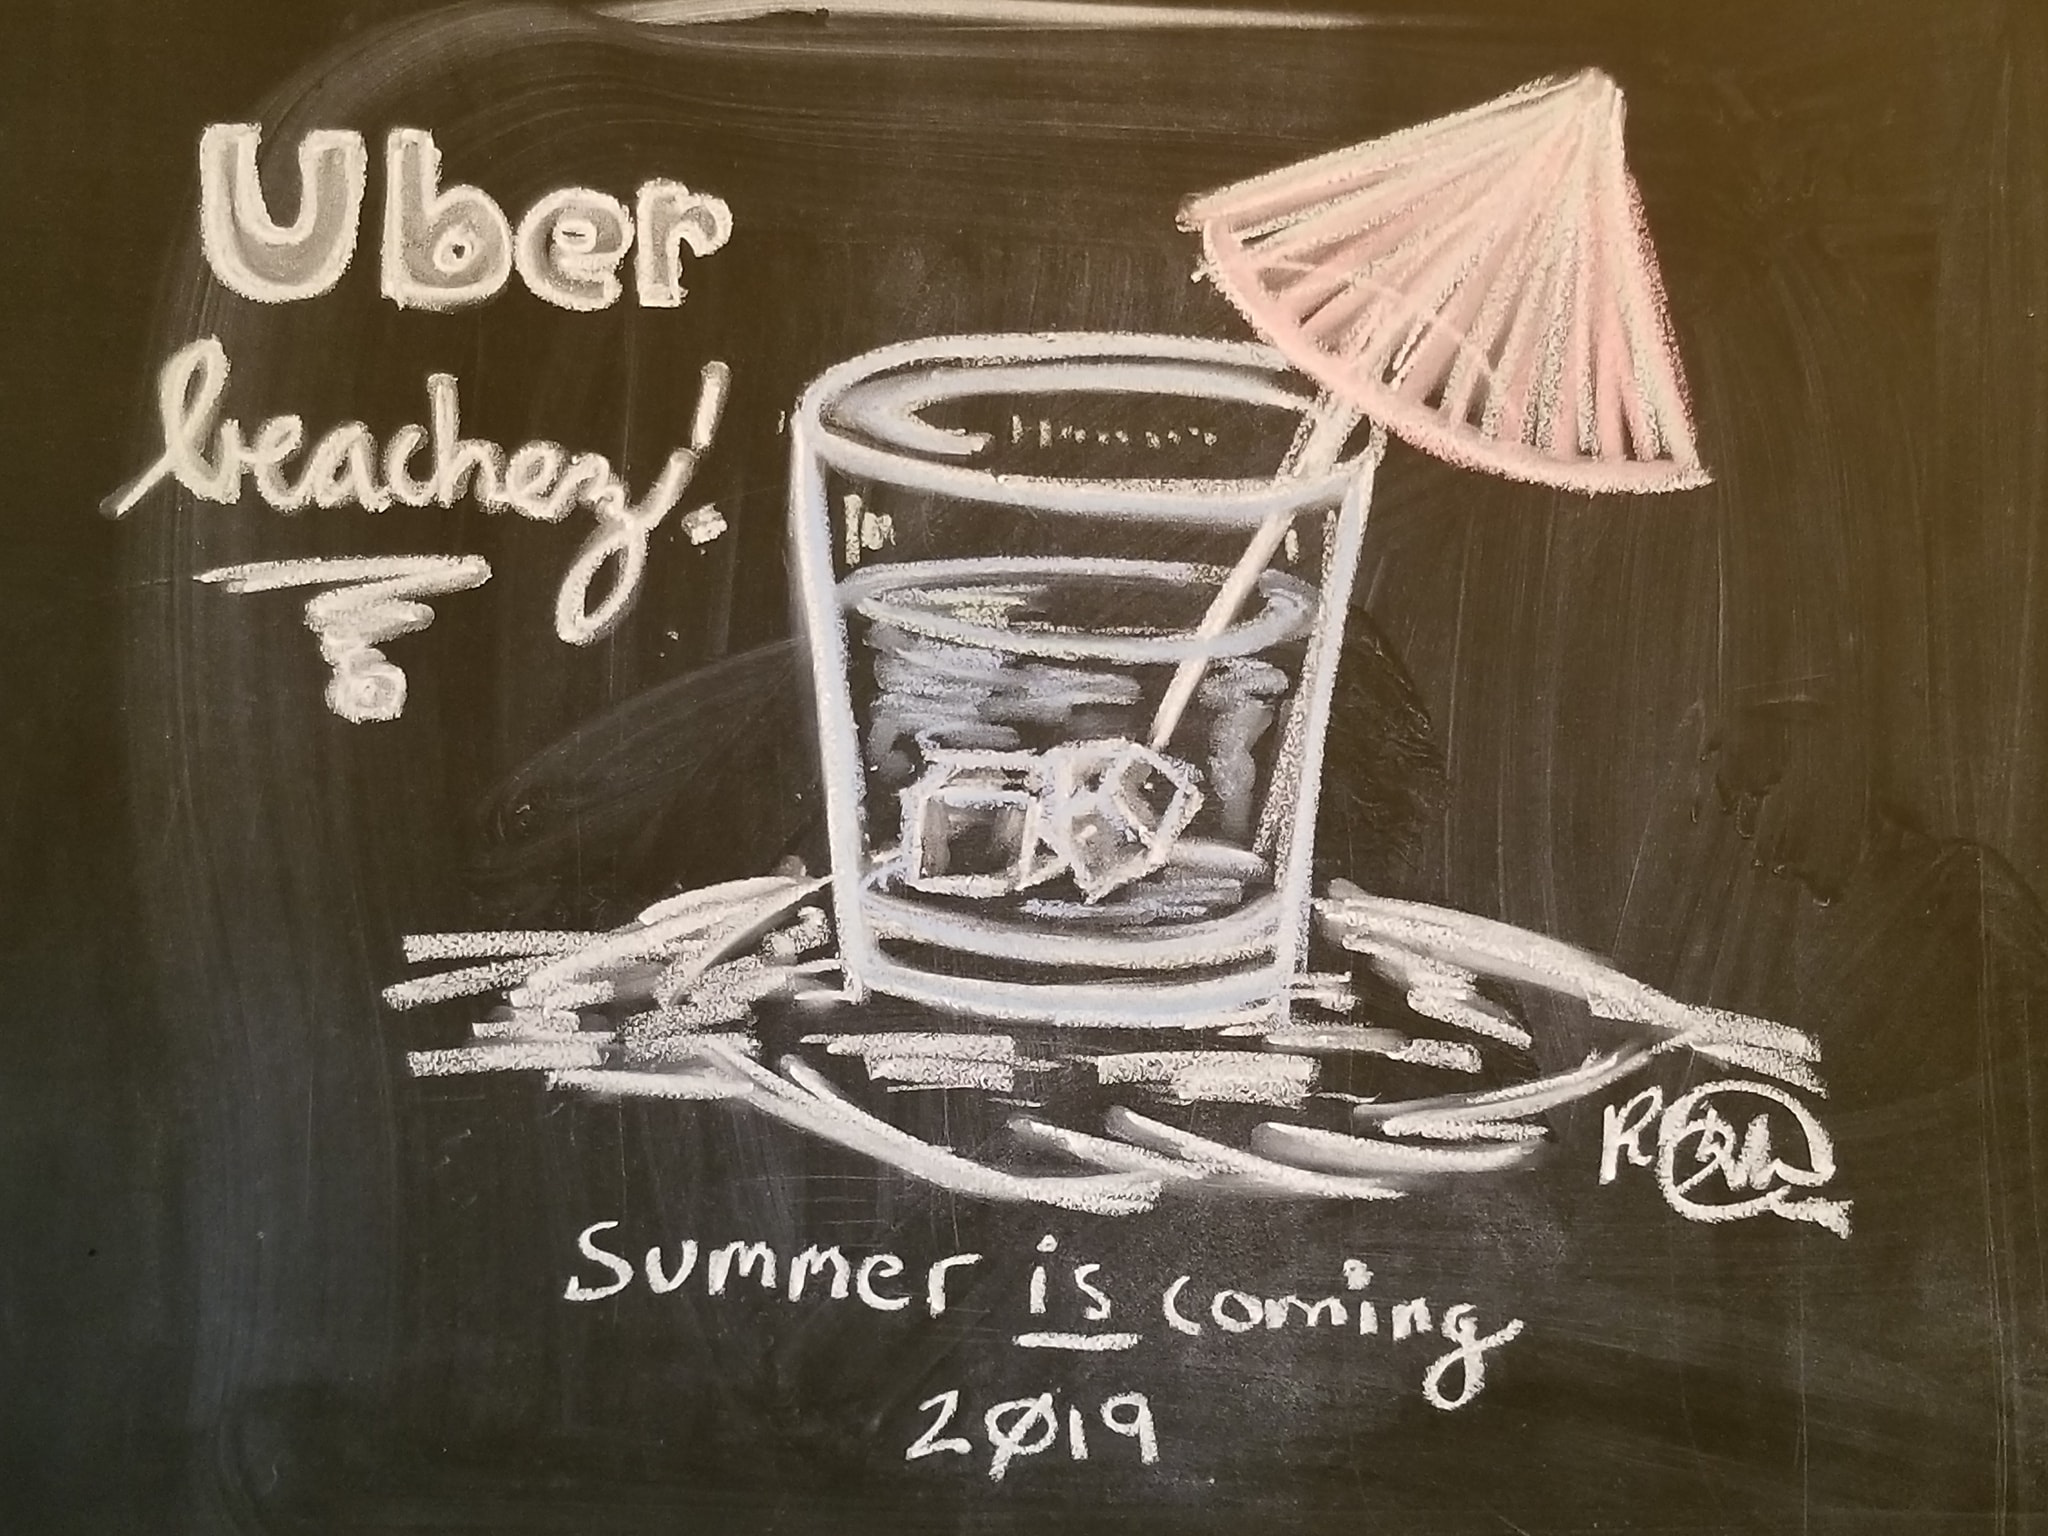 Uber
beachey!
Summer is coming
2019